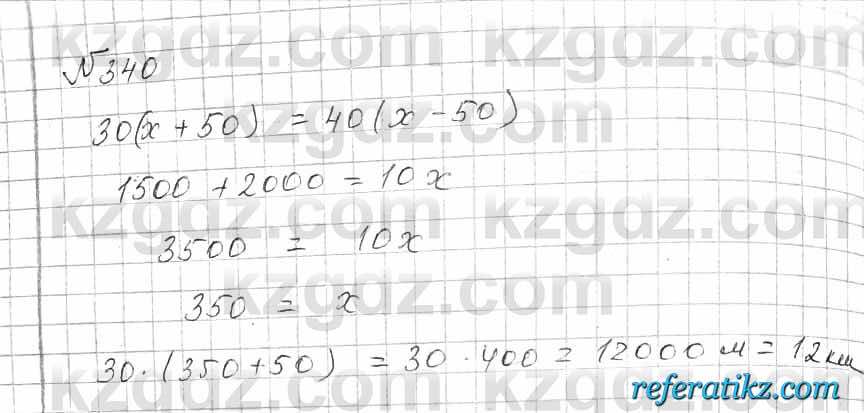 kzgdz.com
№340
30(x + 50) = 40(x - 50)
kzgdz.com
1500 + 2000 = 10x
kzgdz.com
3500 = 10x
kzgdz.com
350 = x
30 · (350 + 50) = 30 · 400 = 12000 м = 12 км
kzgdz.com
referatikz.com